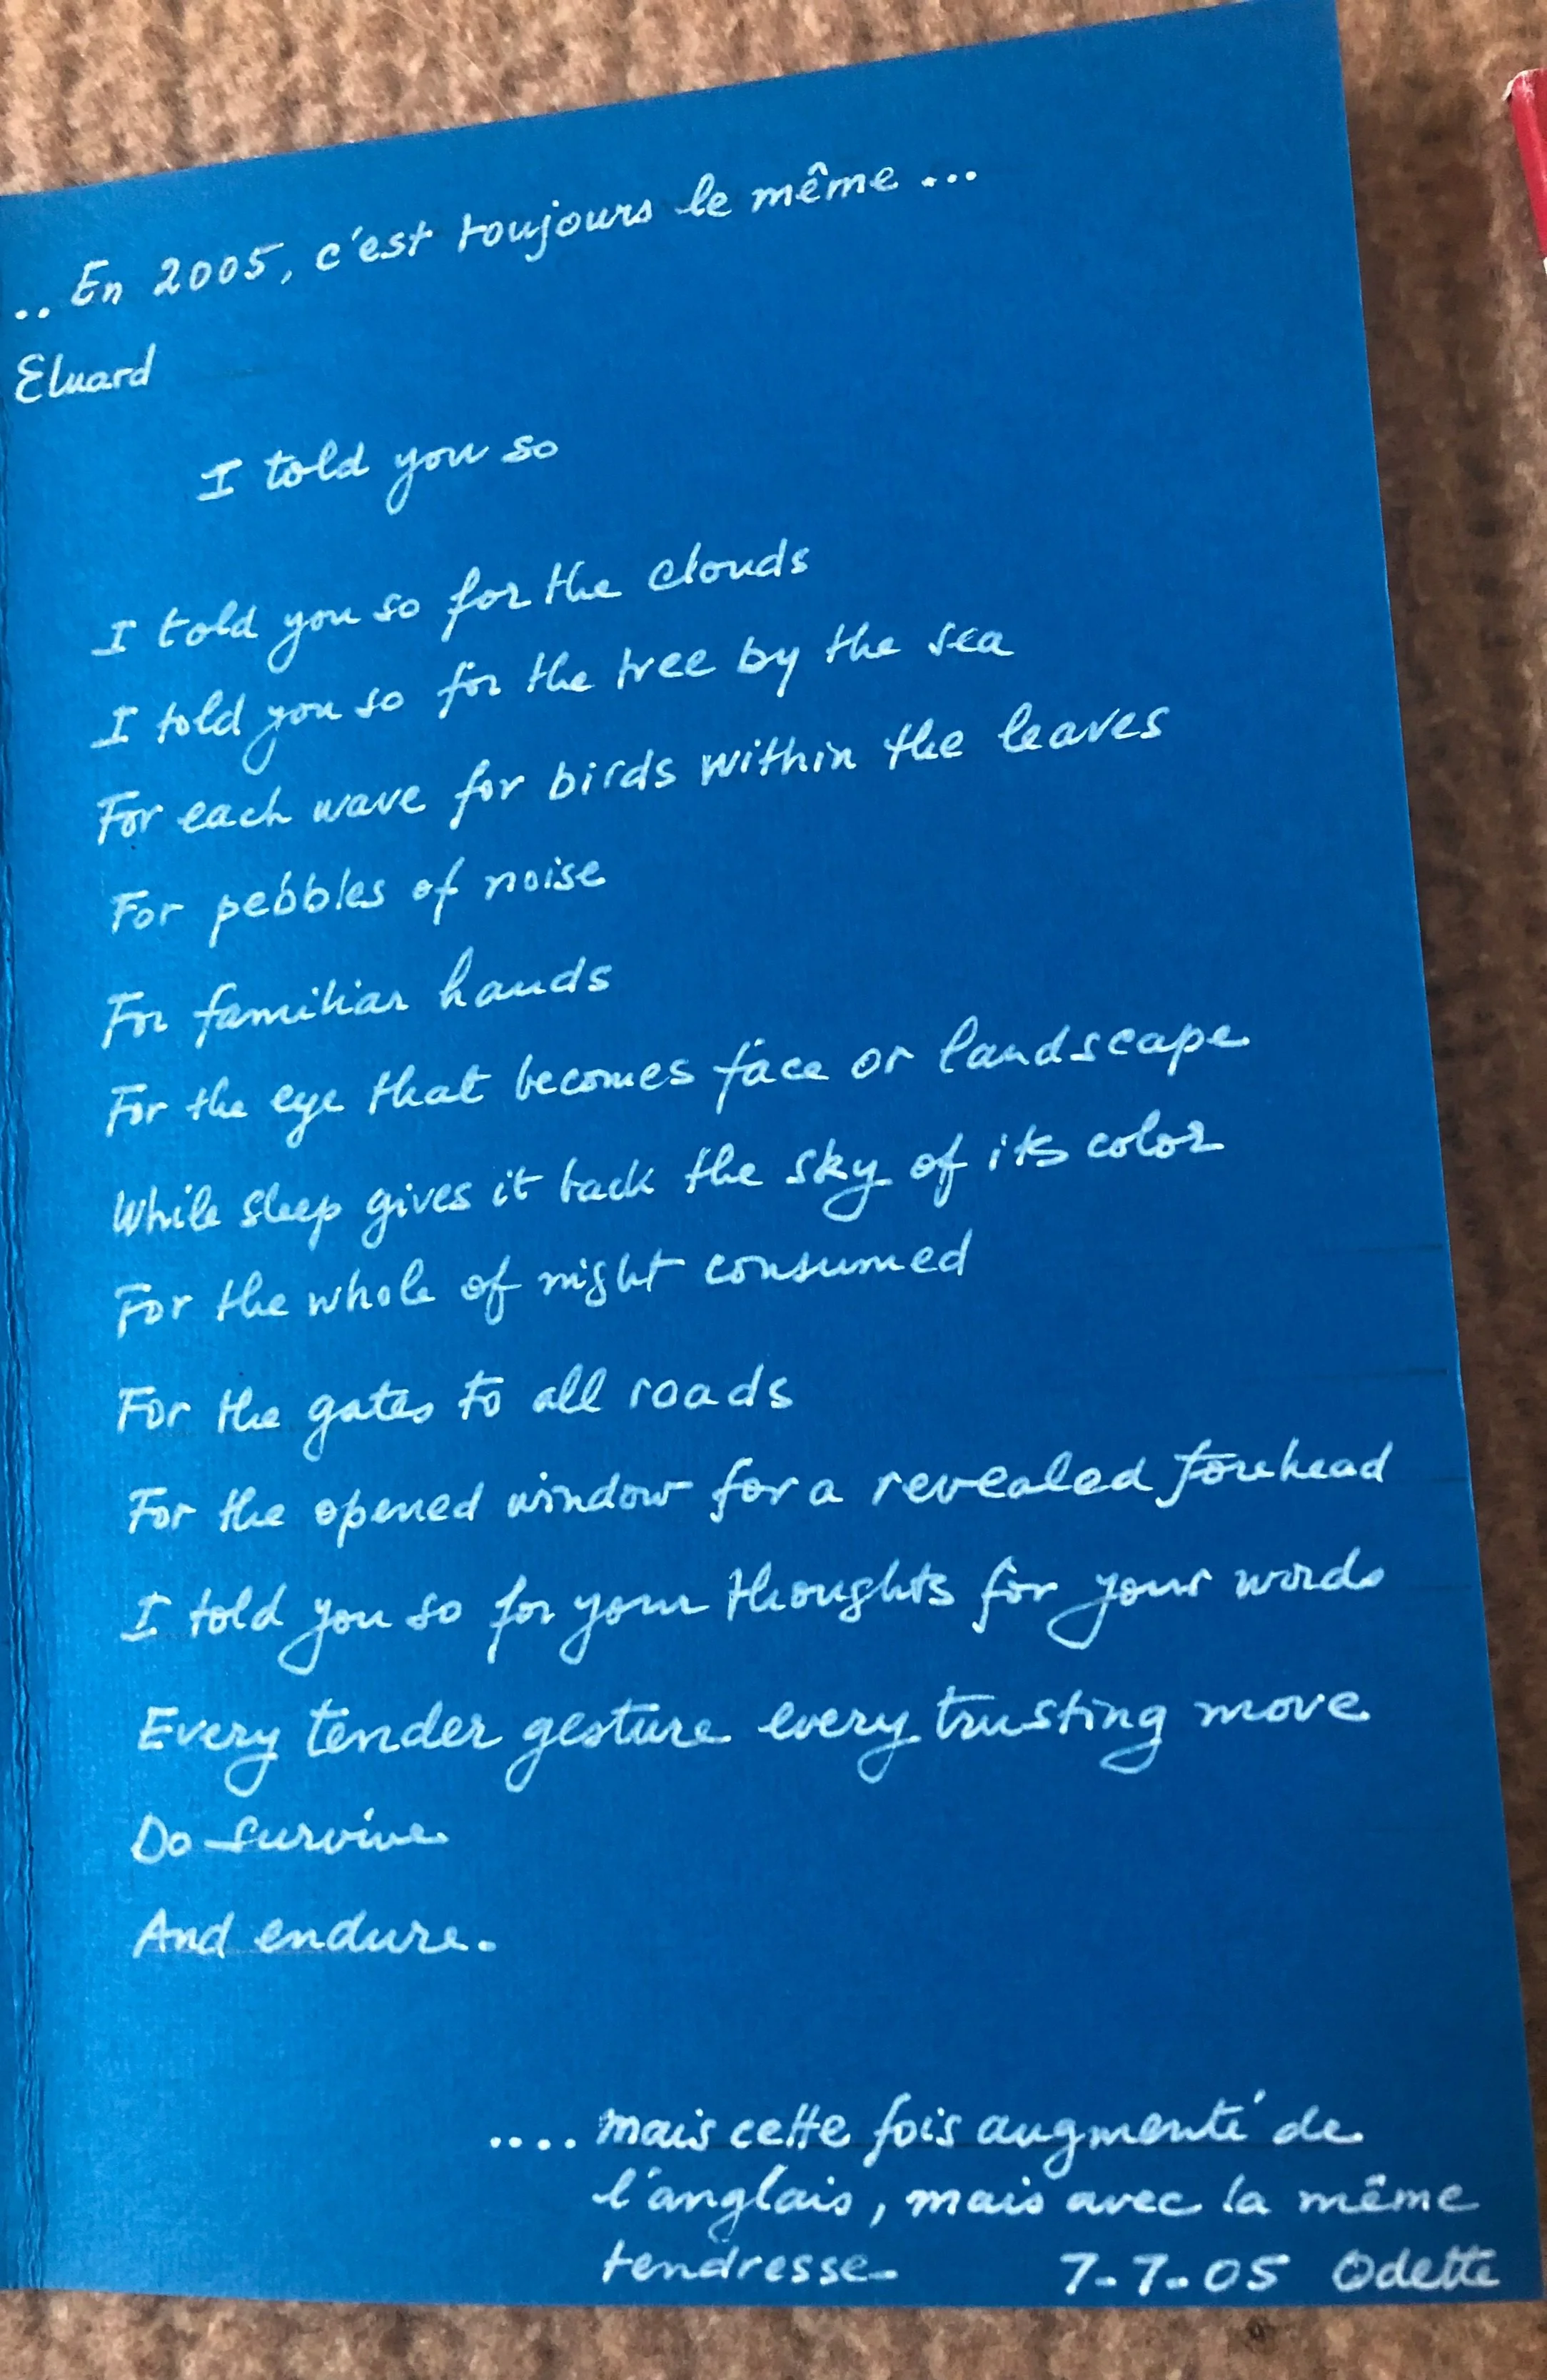 .. En 2005, c'est toujours le même ...
Eluard
I told you so
I told you so for the clouds
I told you so for the tree by the sea
For each wave for birds within the leaves
For pebbles of noise
For familiar hands
For the eye that becomes face or landscape
While sleep gives it back the sky of its color
For the whole of night consumed
For the gates to all roads
For the opened window for a revealed forehead
I told you so for your thoughts for your words
Every tender gesture every trusting move
Do survive
And endure.
.... mais cette fois augmenté de
l'anglais, mais avec la même
tendresse- 7-7-05 Odette